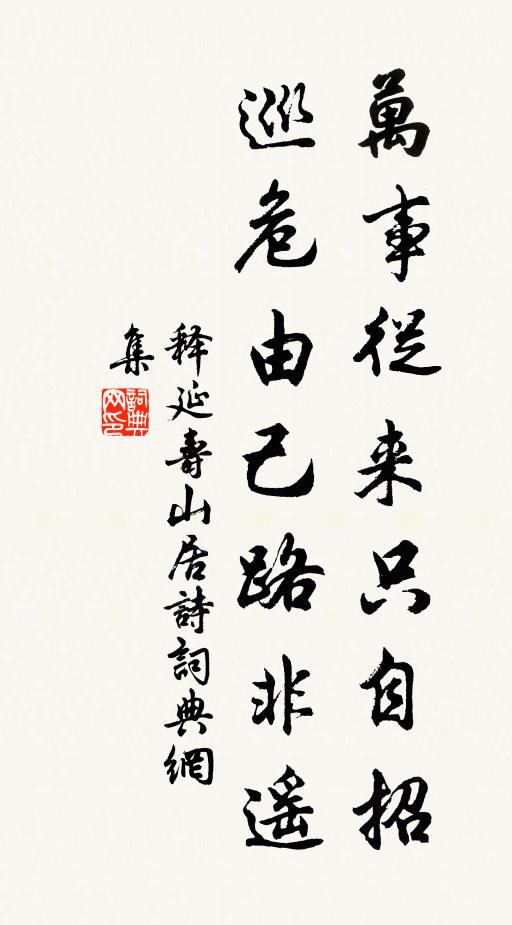 萬事從来只自招
巡危由己路非遥
释延壽山居詩詞典網
集
詞典网印